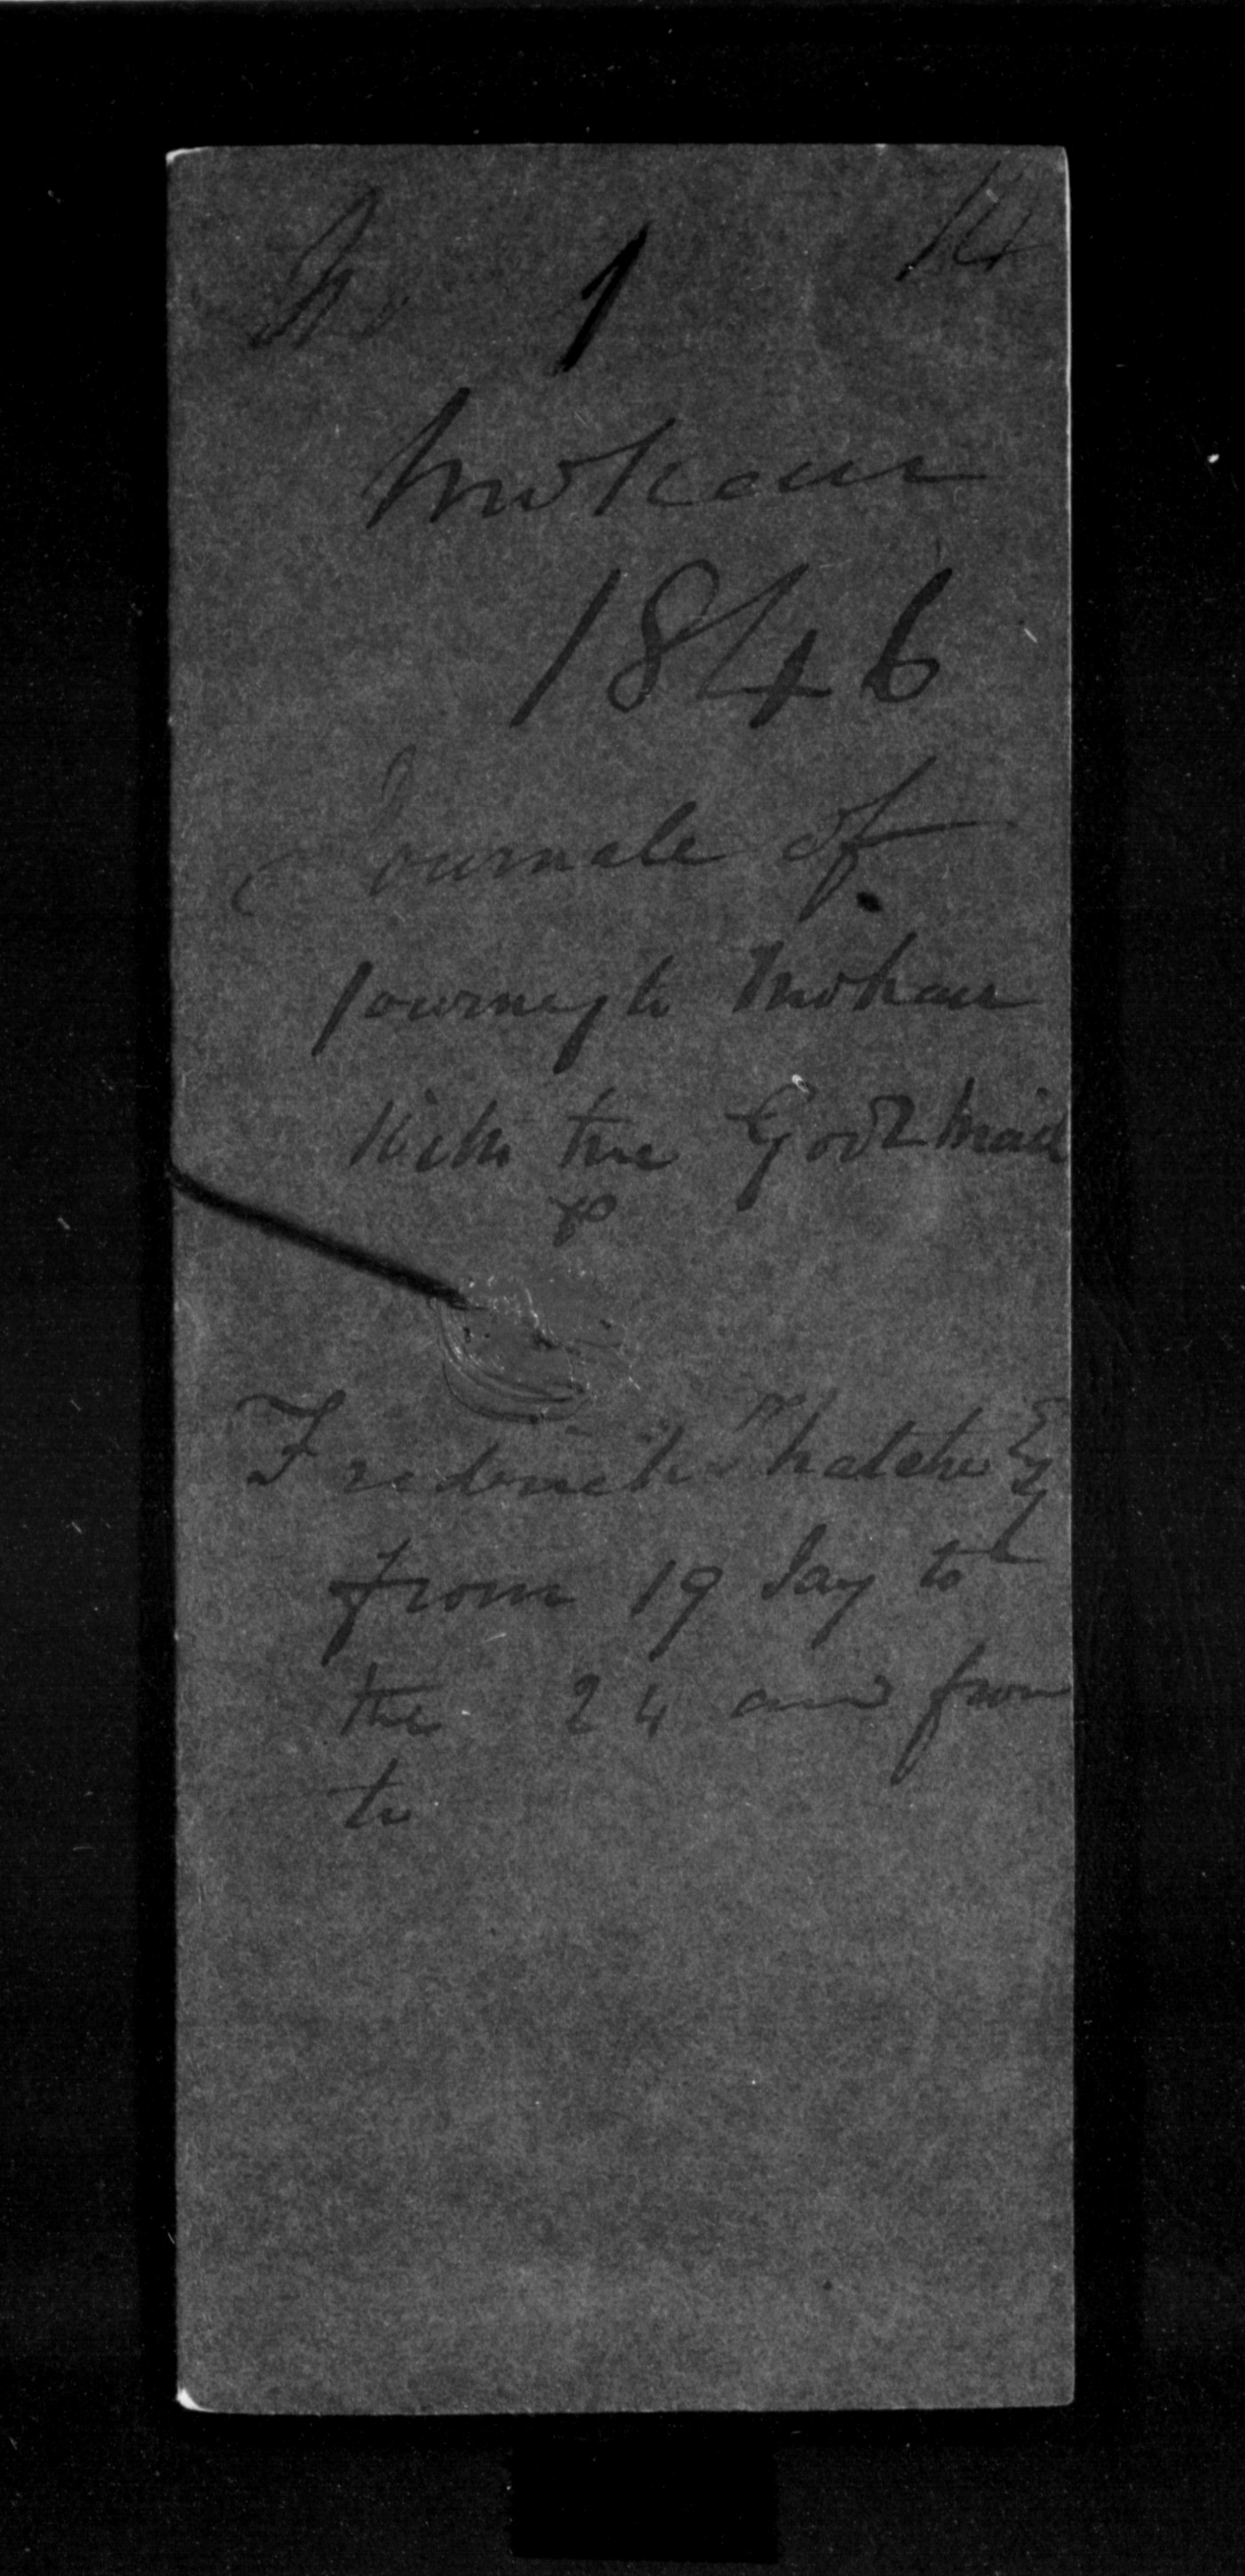 No 1 14
Mokau
1846
Journale of
journey to Mokau
With the Govr Mail
&
Frederick Thatcher Esq
from 19 Jay to
the 24 and from
to